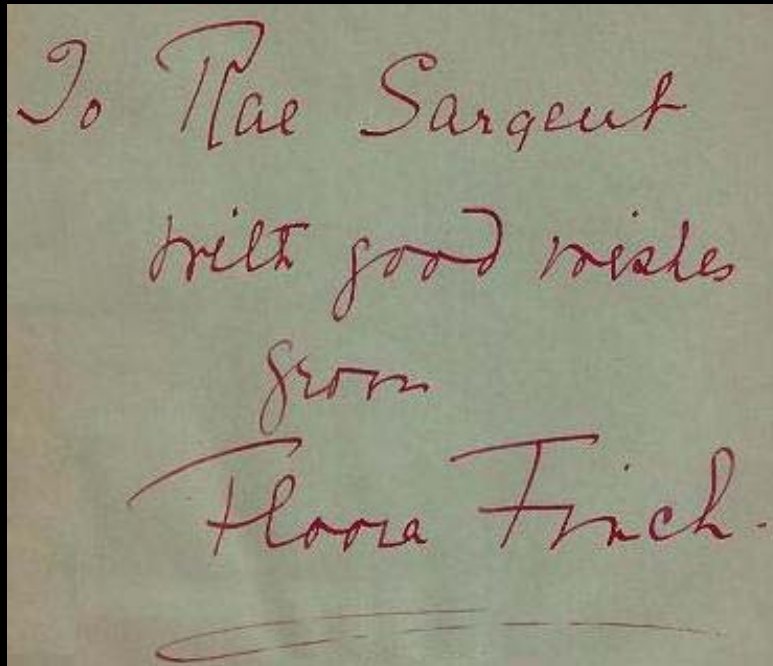 To Rae Sargent
with good wishes
from
Flora Finch.